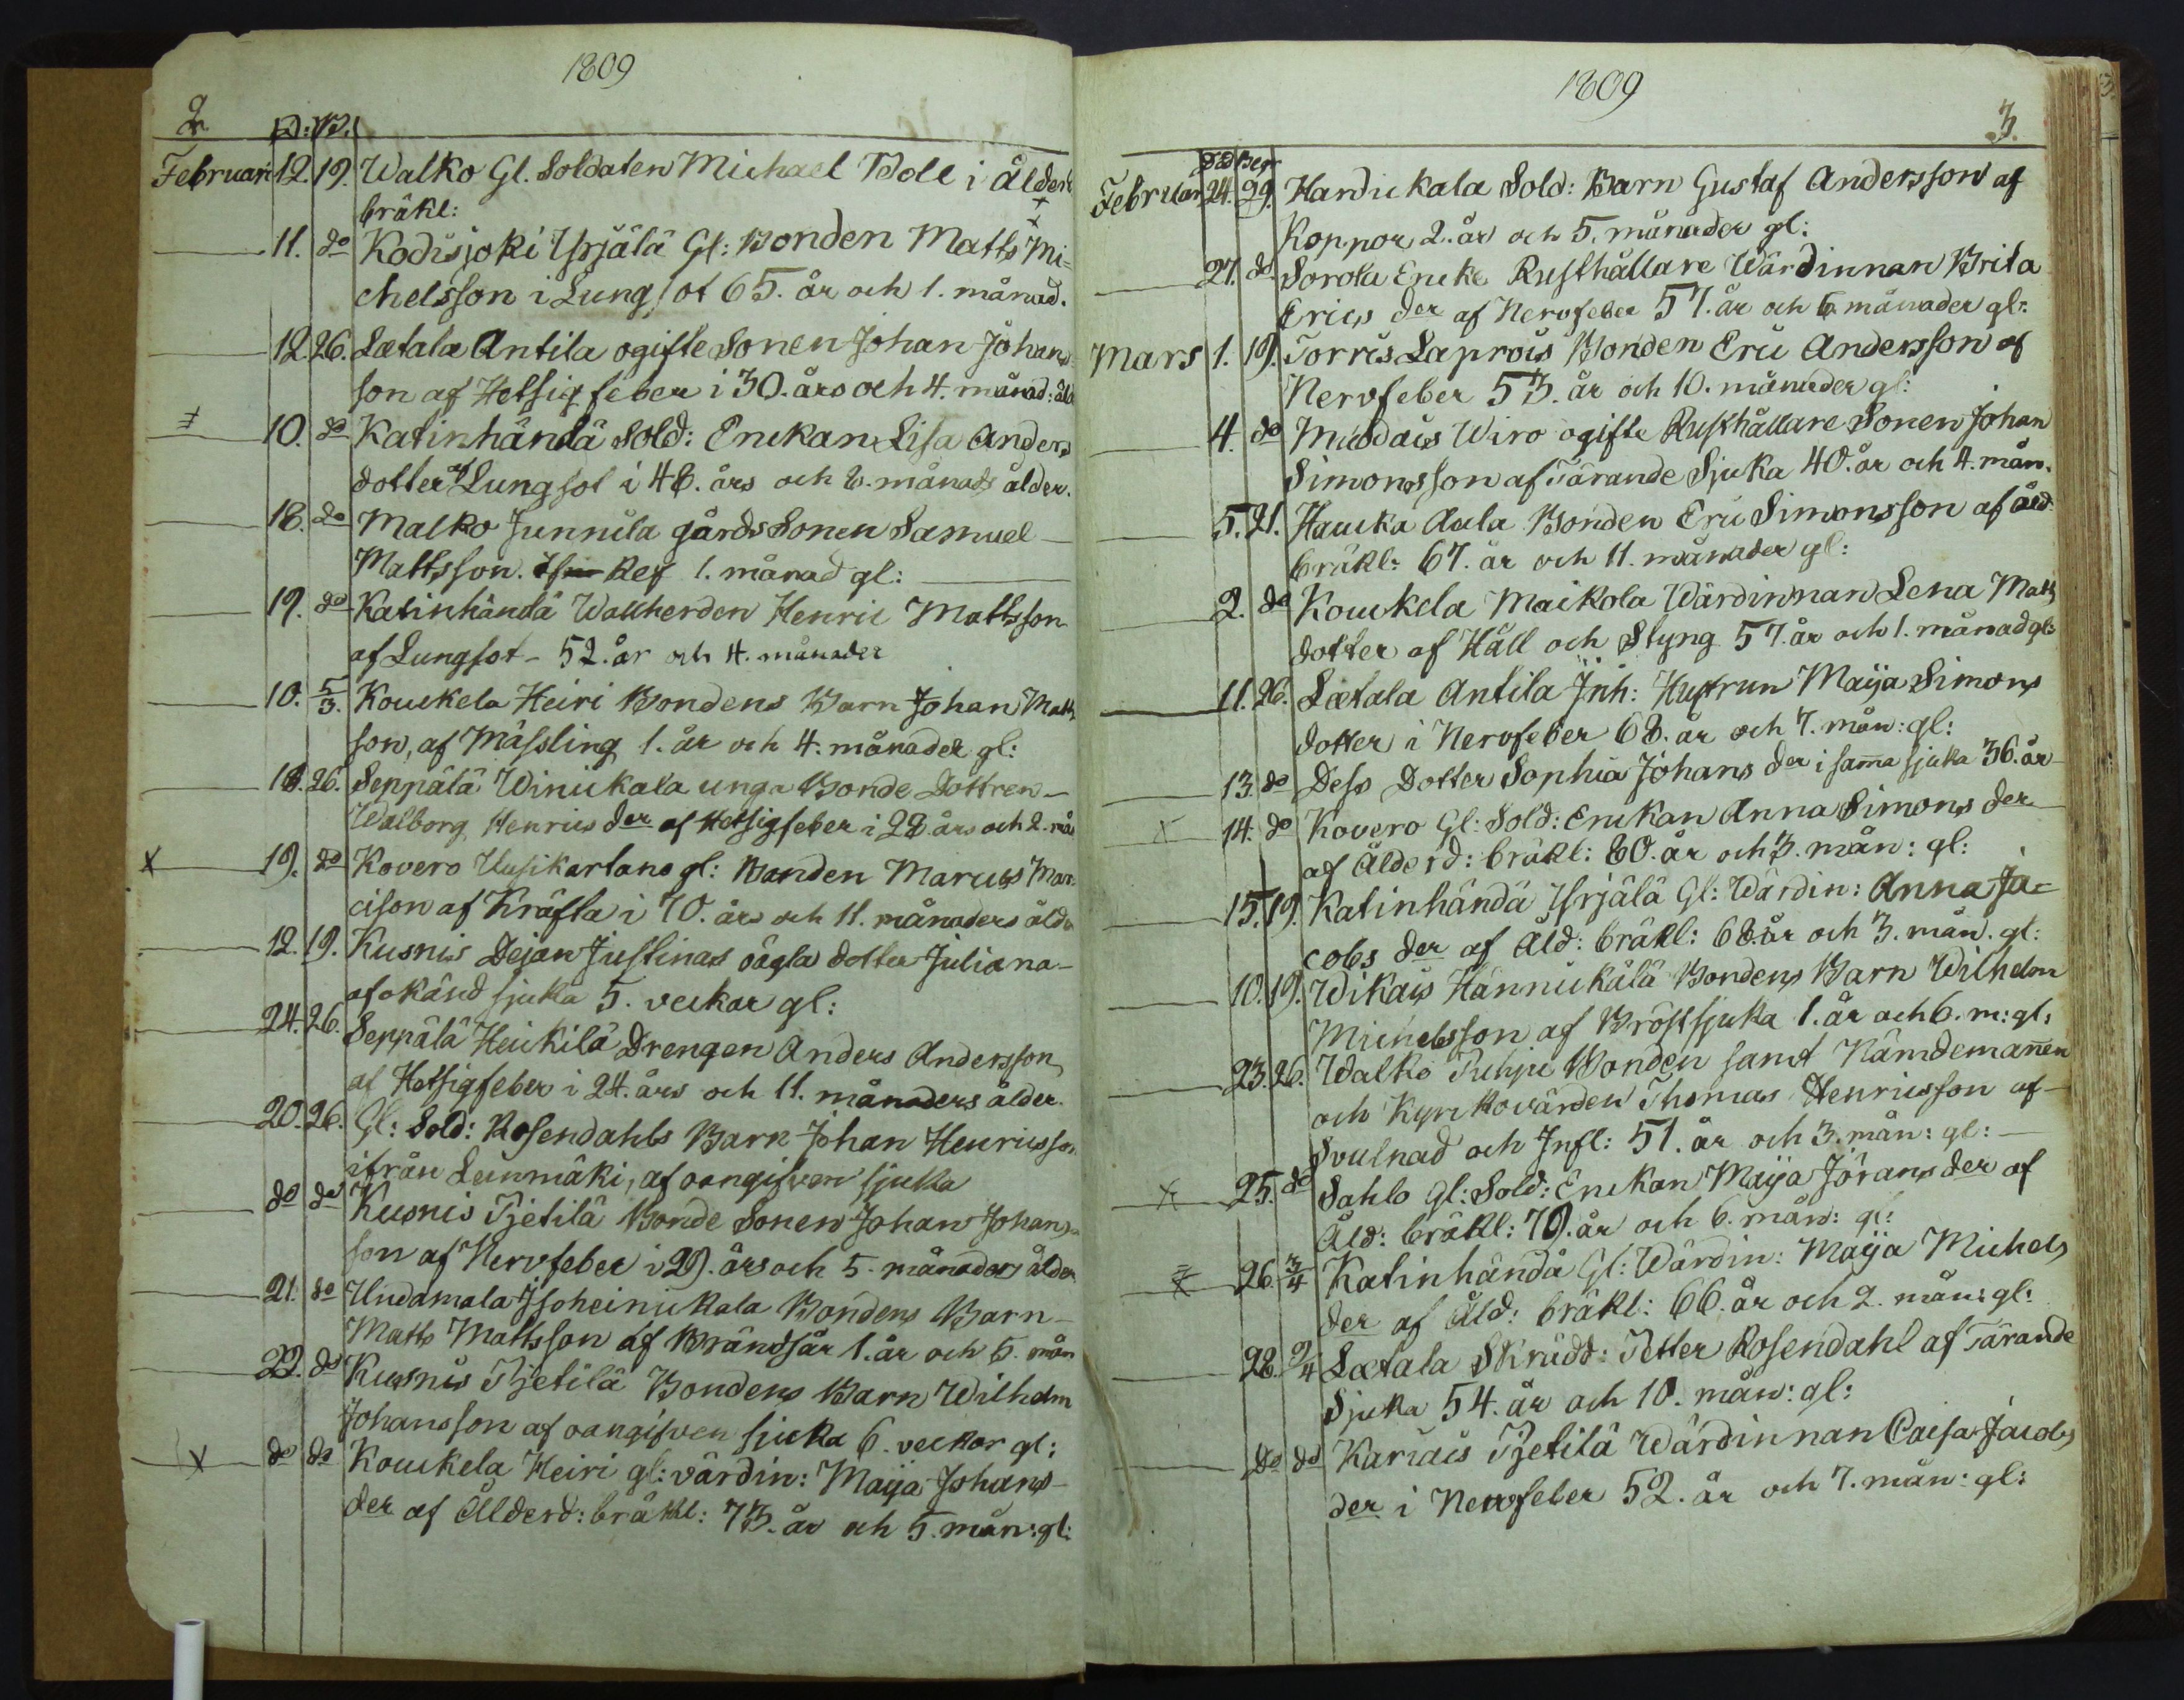 1809
2
D: B.
Februari 12. 19. Walko Gl. Soldaten Michael Boll i Ålderd
bräkl:
11. do Kodisjoki Yrjälä Gl: Bonden Matts Mi=
chelsson i Lungsot 65. år och 1. månad.
12. 26. Lætala Antila ogifte Sonen Johan Johans
son af Hetsig feber i 30. års och 4. månad: äld
10. do Katinhändä Sold: Enckan Lisa Anders
dotter af Lungsot i 48. års och 8. månads ålder.
18. do Malko Junnila gårds Sonen Samuel
Mattsson. Ref 1. månad gl:
19. do Katinhändä Wallherden Henric Mattsson
af Lungsot - 52. år och 4. månader
10. 5/3. Kouckela Heiri Bondens Barn Johan Matts
son, af Mässling 1. år och 4. månader gl:
18. 26. Seppälä Winickala unga Bonde Dottren
Walborg Henrics der af Hetsigfeber i 22. års och 2. mån
19. do Kovero Uusikartano gl: Bonden Marcus Mar=
cison af Kräfta i 70. års och 11. månaders ålde
12. 19. Kusnis Dejan Justinas oägta dotter Juliana
af okänd sjuka 5. veckor gl:
24. 26. Seppälä Heickilä Drengen Anders Andersson
af Hetsigfeber i 24. års och 11. månaders ålder.
20. 26. Gl: Sold: Rosendahls Barn Johan Henricsson
ifrån Leinmäki, af oangifven sjuka
do do Kusnis Pjetilä Bonde Sonen Johan Johans
son af Nervfeber i 29. års och 5. månaders ålder
21. do Undamala Isoheinickala Bondens Barn
Matts Mattsson af Brändsår 1. år och 5. mån
22. do Kusnis Pjetilä Bondens Barn Wilhelm
Johansson af oangifven sjuka 6. veckor gl:
do do Kouckela Heiri gl: värdin: Maija Johans
der af Ålderd: bräkl: 73. år och 5. mån: gl:
1809
3.
Död Begr
Februari 24. 29. Hardickala Sold: Barn Gustaf Andersson af
Koppor, 2. år och 5. månader gl:
27. do Sorola Encke Rusthållare Wärdinnan Brita
Erics der af Nervfeber 57. år och 6. månader gl:
Mars 1. 19. Torris Laprois Bonden Eric Andersson af
Nervfeber 53. år och 10. månader gl:
4. do Muddais Wiro ogifte Rusthållare Sonen Johan
Simonsson af Tärande Sjuka 40. år och 4. mån.
5. 21. Haucka Aala Bonden Eric Simonsson af åld
bräkl: 67. år och 11. månader gl:
2. do Kouckela Maikola Wärdinnan Lena Matts
dotter af Håll och Styng 57. år och 1. månad gl:
11. 26. Lætala Antila Inh: Hustrun Maija Simons
dotter i Nervfeber 68. år och 7. mån: gl:
13. do Dess Dotter Sophia Johans der i sam̄a sjuka 36. år
14. do Kovero Gl: Sold: Enckan Anna Simons der
af Ålderd: bräkl: 80. år och 3. mån: gl:
15. 19. Katinhändä Yrjälä Gl: Wärdin: Anna Ja=
cobs der af Åld: bräkl: 68 år och 3. mån. gl:
10. 19. Wikais Hännickälä Bondens Barn Wilhelm
Michelsson af Bröstsjuka 1. år och 6. m: gl:
23. 26. Walko Tuhju Bonden samt Nämdeman̄en
och Kyrckovärden Thomas Henricsson af
Svulnad och Infl: 51. år och 3. mån: gl:
25. do Sahlo Gl: Sold: Enckan Maija Jörans der af
Åld: bräkl: 79. år och 6. mån: gl:
26. 3/4 Katinhändä Gl: Wärdin: Maija Michels
der af Åld: bräkl: 66. år och 2. mån: gl:
28. 9/4 Lætala Skrädd: Petter Rosendahl af Tärande
Sjuka 54. år och 10. mån: gl:
do do Kariais Pjetilä Wärdinnan Caisa Jacobs
der i Nervfeber 52. år och 7. mån: gl: